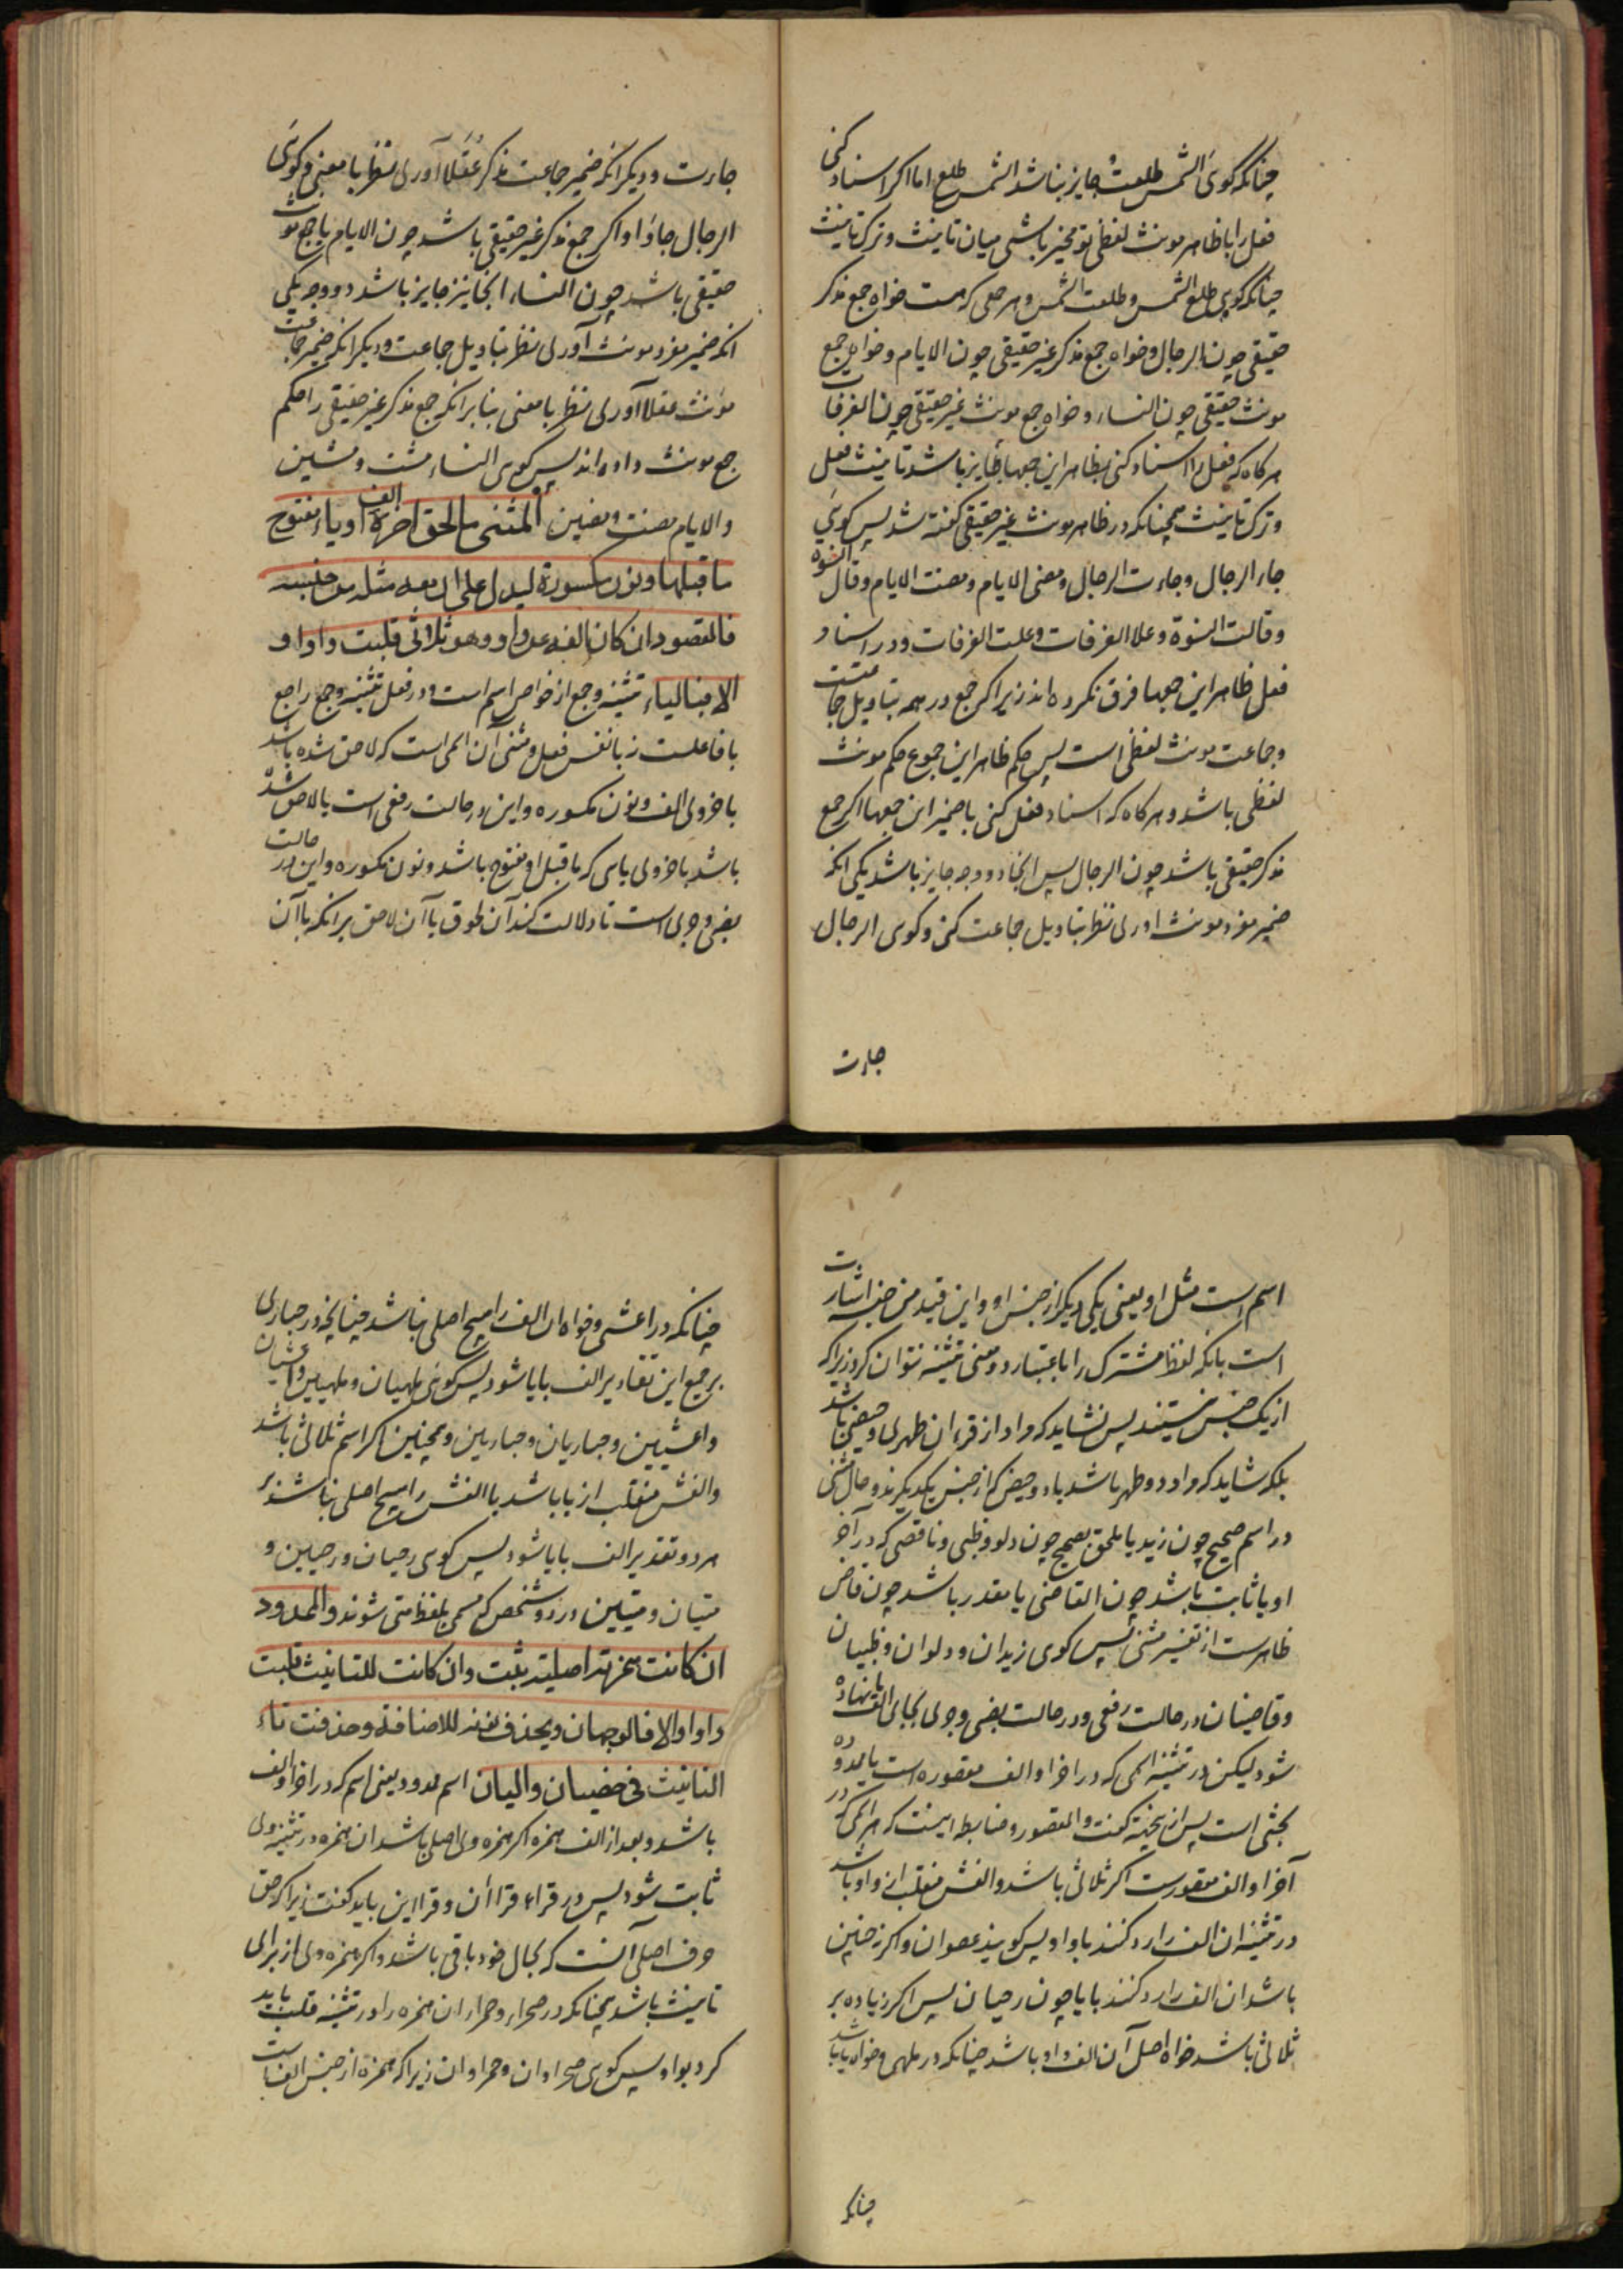 چنانکه کوئی الشمس طلعت جایز نباشد الشمس طلع اما اکر اسناد کنی
فعل را با ظاهر مونث لفظی تو مخیر باشی میان تانیث و ترک تانیث
چنانکه کویی طلع الشمس و طلعت الشمس و هر جمعی که هست خواه جمع مذکر
حقیقی چون الرجال و خواه جمع مذکر غیر حقیقی چون الایام و خواه جمع
مونث حقیقی چون النساء و خواه جمع مونث غیر حقیقی چون الغرفات
هرکاه که فعل را اسناد کنی بظاهر این جمعها جایز باشد تانیث فعل
و ترک تانیث همچنانکه در ظاهر مونث غیر حقیقی کفته شد پس کوئی
جاء الرجال و جاءت الرجال و مضی الایام و مضت الایام و قال النسوة
و قالت النسوة و علا الغرفات و علت الغرفات و در اسناد
فعل ظاهر این جمعها فرق نکرده اند زیراکه جمع در همه بتاویل جماعتست
و جماعت مونث لفظی است پس حکم ظاهر این جموع حکم مونث
لفظی باشد و هرکاه که اسناد فعل کنی با ضمیر این جمعها اکر جمع
مذکر حقیقی باشد چون الرجال پس اینجا دو وجه جایز باشد یکی انکه
ضمیر مفرد مونث اوری نظر بتاویل جماعت کنی و کوی الرجال
جاءت
جاءت و دیکر انکه ضمیر جماعت مذکر عقلا آوری نظر با معنی و کوئی
الرجال جاؤا و اکر جمع مذکر غیر حقیقی باشد چون الایام یا جمع مونث
حقیقی باشد چون النساء اینجا نیز جایز باشد دو وجه یکی
انکه ضمیر مفرد مونث آوری نظر بتاویل جماعت و دیکر انکه ضمیر جماعت
مونث عقلا آوری نظر با معنی بنابر انکه جمع مذکر غیر حقیقی را حکم
جمع مونث داده اند پس کوی النساء مشت و مشین
و الایام مضت و مضین المثنی ما لحق اخره الف او یاء مفتوح
ما قبلها و نون مکسورة لیدل علی ان معه مثله من جنسه
فالمقصور ان کان الفه عن واو و هو ثلاثی قلبت واوا و
الا فبالیاء تثنیه و جمع از خواص اسم است و در فعل تثنیه و جمع راجع
با فاعلست نه با نفس فعل و مثنی آن اسمی است که لاحق شده باشد
باخر وی الف و نون مکسوره و این در حالت رفعی است یا لاحق شده
باشد باخر وی یایی که ما قبل او مفتوح باشد و نون مکسوره و این در حالت
نصبی و جری است تا دلالت کند آن لحوق یا آن لاحق بر انکه با آن
اسم است مثل او یعنی یکی دیکر از جنس او و این قید من جنسه اشارت
است بانکه لفظ مشترک را باعتبار دو معنی تثنیه نتوان کرد زیراکه
از یک جنس نیستند پس نشاید که مراد از قرءان طهری و حیضی باشد
بلکه شاید که مراد دو طهر باشد یا دو حیض که از جنس یکدیکرند و حال مثنی
در اسم صحیح چون زید یا ملحق بصحیح چون دلو و ظبی و ناقصی که در آخر
او یا ثابت باشد چون القاضی یا مقدر باشد چون قاض
ظاهرست از تفسیر مثنی پس کوی زیدان و دلوان و ظبیان
و قاضیان در حالت رفعی و در حالت نصبی و جری بجای الف یا نهاده
شود لیکن در تثنیه اسمی که در اخر او الف مقصوره است یا ممدوده
بحثی است پس از ینجهته کفت و المقصور و ضابطه اینست که هر اسمی که در
آخر او الف مقصورست اکر ثلاثی باشد و الفش منقلب از واو باشد
در تثنیه ان الف را رد کنند با واو پس کویند عصوان و اکر نه چنین
باشد ان الف را رد کنند با یا چون رحیان پس اکر زیاده بر
ثلاثی باشد خواه اصل آن الف واو باشد چنانکه در ملهی و خواه یا باشد
چنانکه
چنانکه در اعشی و خواه ان الف را هیچ اصلی نباشد چنانچه در حباری
بر جمیع این تقادیر الف با یا شود پس کوئی ملهیان و ملهیین و اعشیان
و اعشیین و حباریان و حباریین و همچنین اکر اسم ثلاثی باشد
و الفش منقلب از یا باشد یا الفش را هیچ اصلی نباشد بر
هر دو تقدیر الف با یا شود پس کوی رحیان و رحیین و
متیان و متیین در دو شخص که مسمی بلفظ متی شوند و الممدود
ان کانت همزته اصلیته یثبت و ان کانت للتانیث قلبت
واوا و الا فالوجهان و یحذف نونه للاضافة و حذفت تاء
التانیث فی خصیان و الیان اسم ممدود یعنی اسم که در اخر او الف
باشد و بعد از الف همزه اکر همزه وی اصلی باشد ان همزه در تثنیه وی
ثابت شود پس در قراء قراأن و قرااین باید کفت زیراکه حق
حرف اصلی آنست که بحال خود باقی باشد و اکر همزه وی از برای
تانیث باشد همچنانکه در صحراء و حمراء ان همزه را در تثنیه قلب باید
کرد بواو پس کوی صحراوان و حمراوان زیراکه همزه از جنس الف است